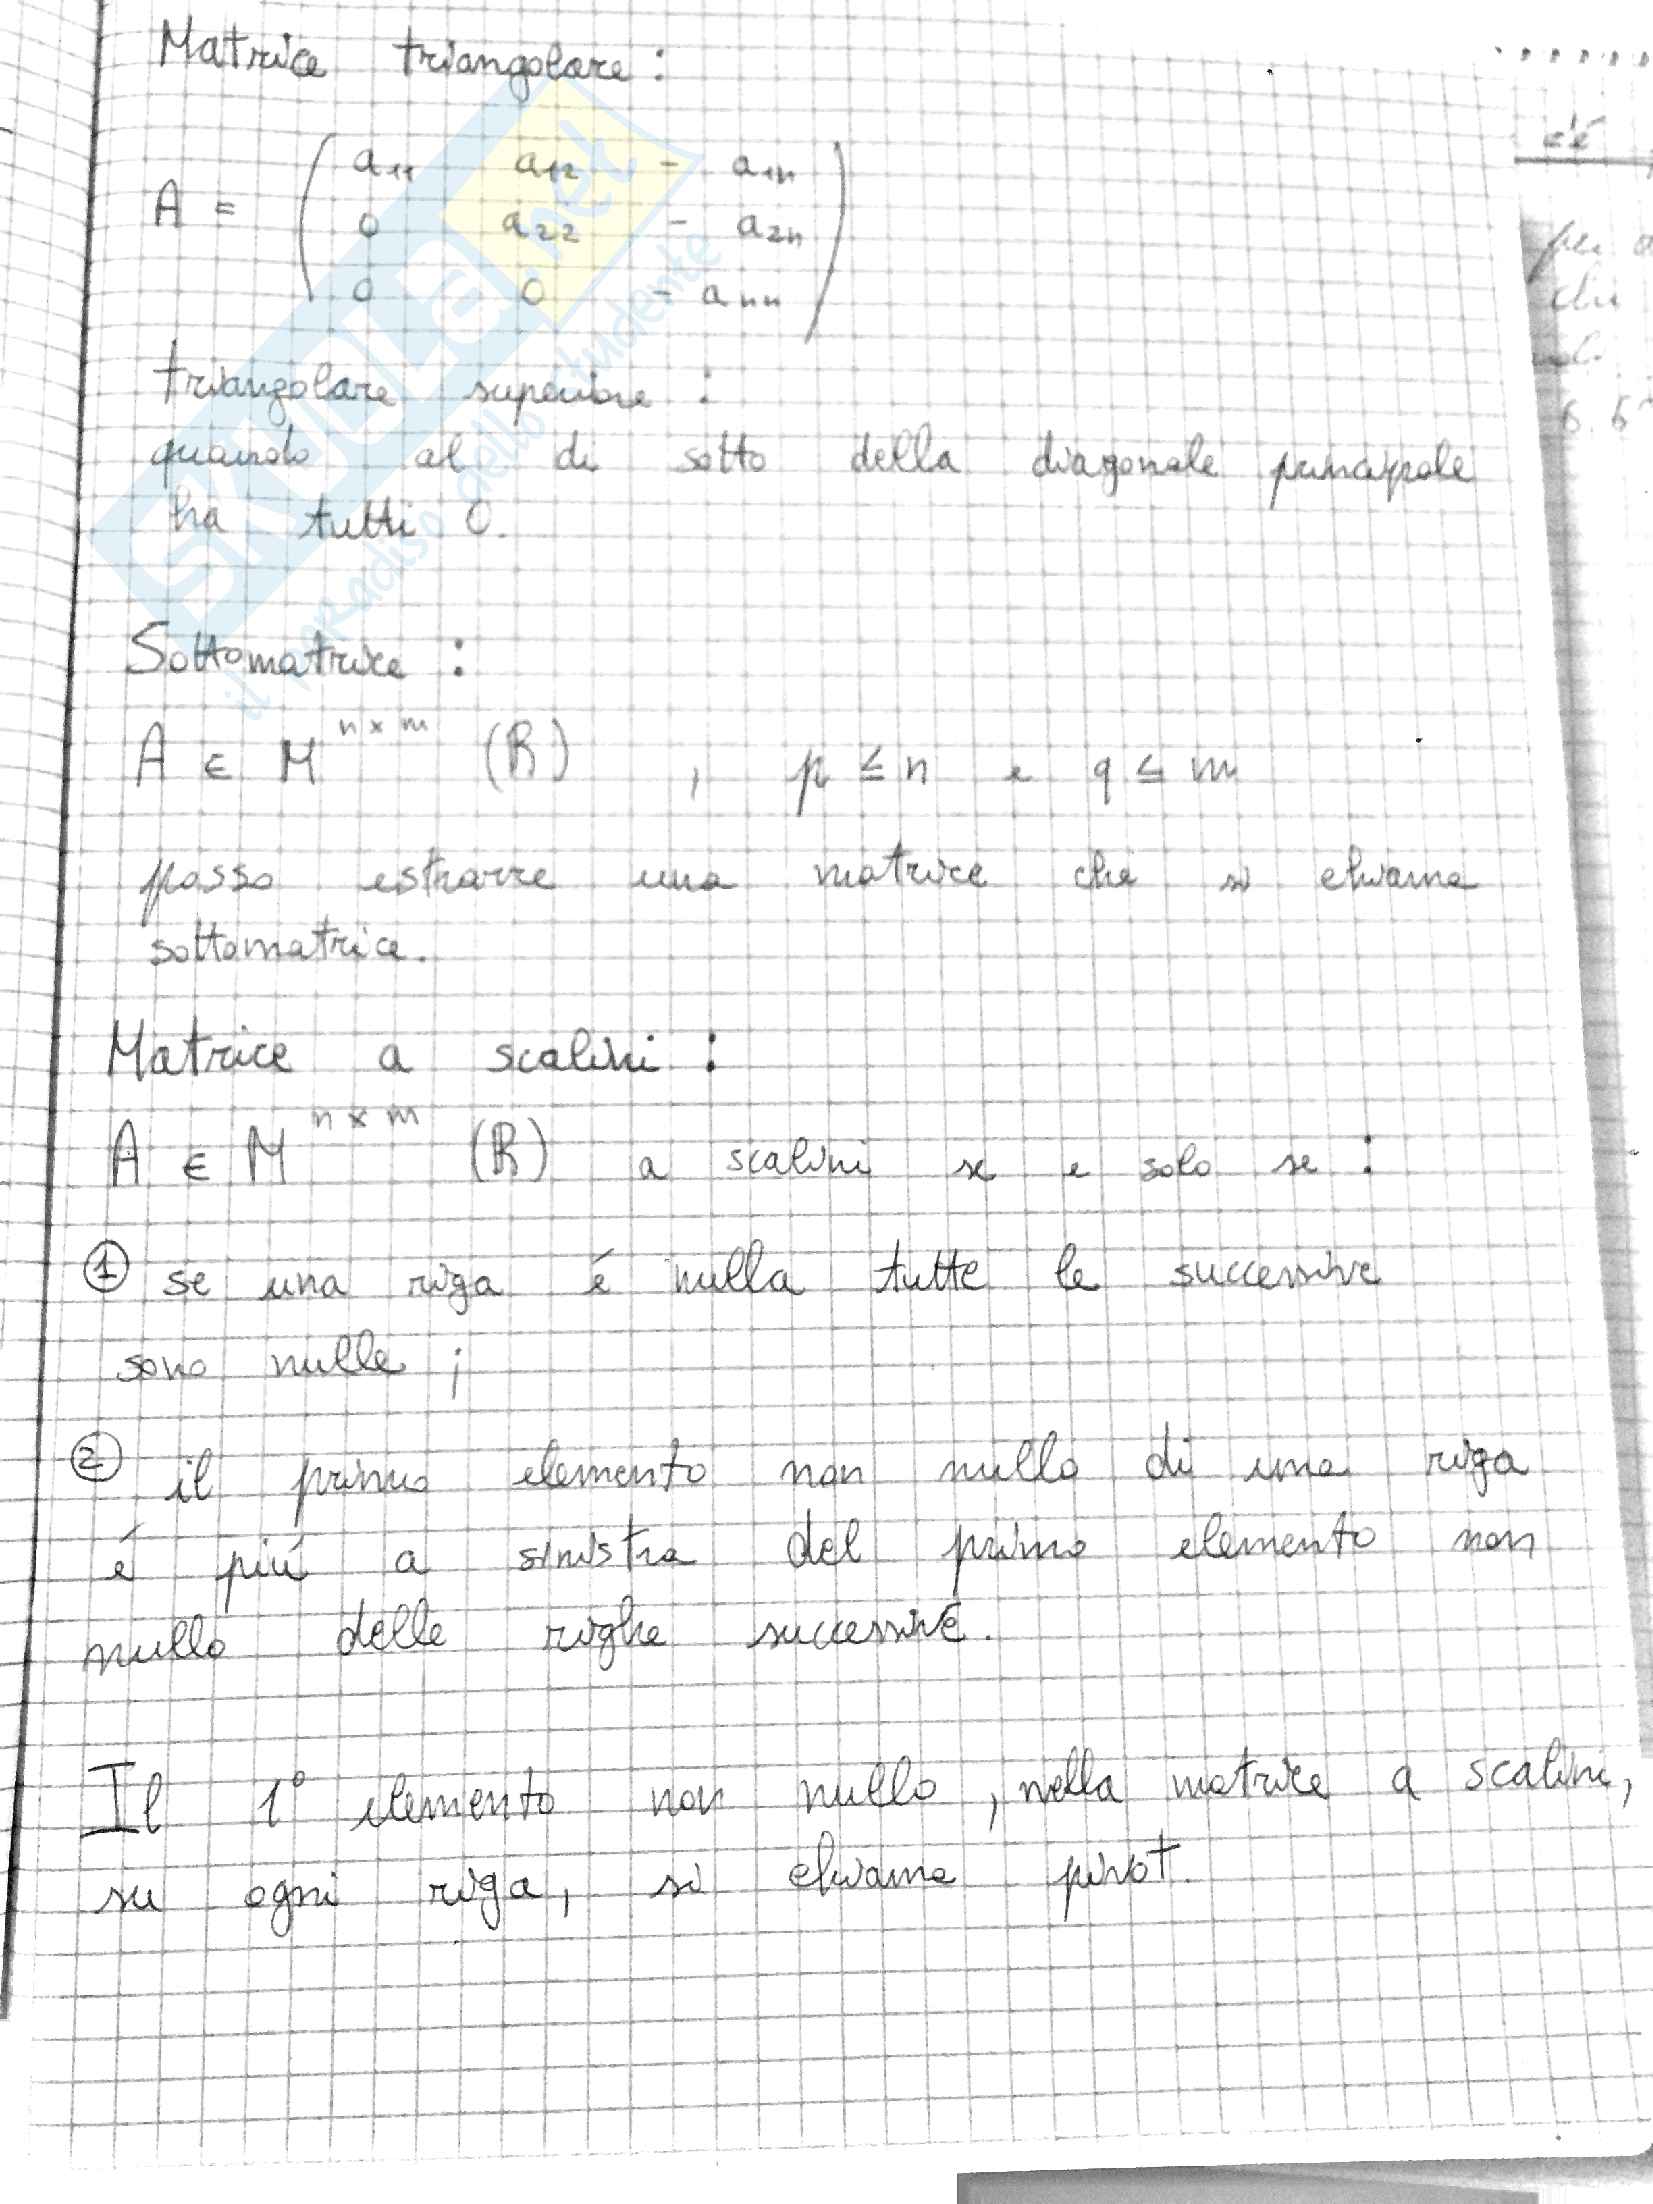 Matrice triangolare :
A = ( a₁₁ a₁₂ - a₁ₙ
0 a₂₂ - a₂ₙ
0 0 - aₙₙ )
triangolare superiore :
quando al di sotto della diagonale principale
ha tutti 0.
Sottomatrice :
A ∈ M^{n×m} (R) , p ≤ n e q ≤ m
posso estrarre una matrice che si chiama
sottomatrice.
Matrice a scalini :
A ∈ M^{n×m} (R) a scalini se e solo se :
① se una riga é nulla tutte le successive
sono nulle ;
② il primo elemento non nullo di una riga
é piú a sinistra del primo elemento non
nullo delle righe successive.
Il 1° elemento non nullo, nella matrice a scalini,
su ogni riga, si chiama pivot.
SKUOLA.net
il paradiso dello studente